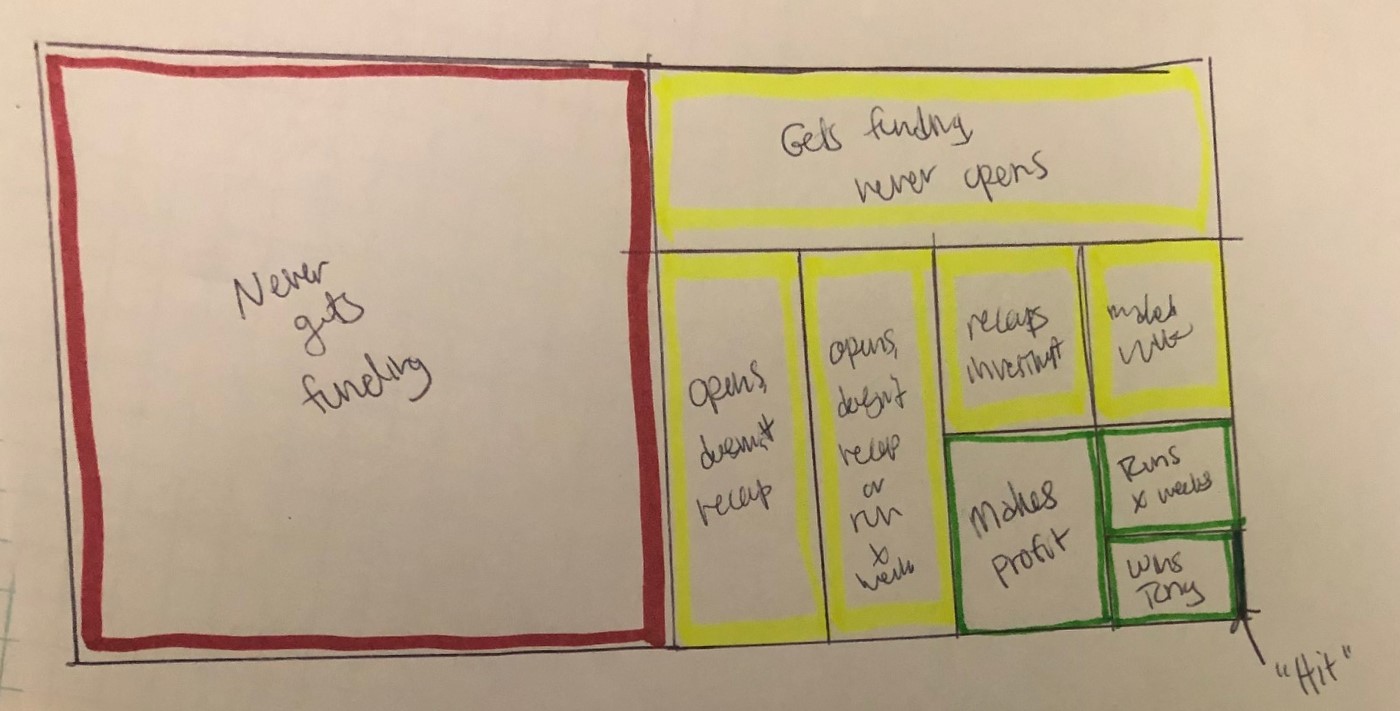 Never
gets
funding
Gets funding,
never opens
opens,
doesn't
recap
opens,
doesn't
recap
or
run
x
weeks
recaps
investment
makes
Makes
profit
Runs
x weeks
Wins
Tony
"Hit"